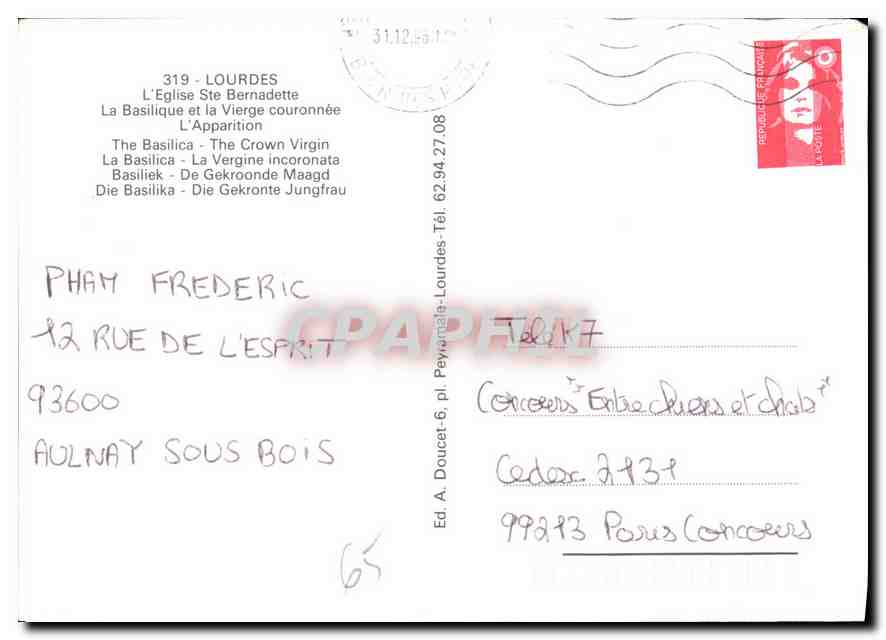 319 - LOURDES
L'Eglise Ste Bernadette
La Basilique et la Vierge couronnée
L'Apparition
The Basilica - The Crown Virgin
La Basilica - La Vergine incoronata
Basiliek - De Gekroonde Maagd
Die Basilika - Die Gekronte Jungfrau
31.12
REPUBLIQUE FRANÇAISE
LA POSTE
Ed. A. Doucet-6, pl. Peyramale-Lourdes-Tél. 62.94.27.08
CPAPHIL
PHAM FREDERIC
12 RUE DE L'ESPRIT
93600
AULNAY SOUS BOIS
Télé K7
Concours "Entre chiens et chats"
Cedex 2131
99213 Paris Concours
65